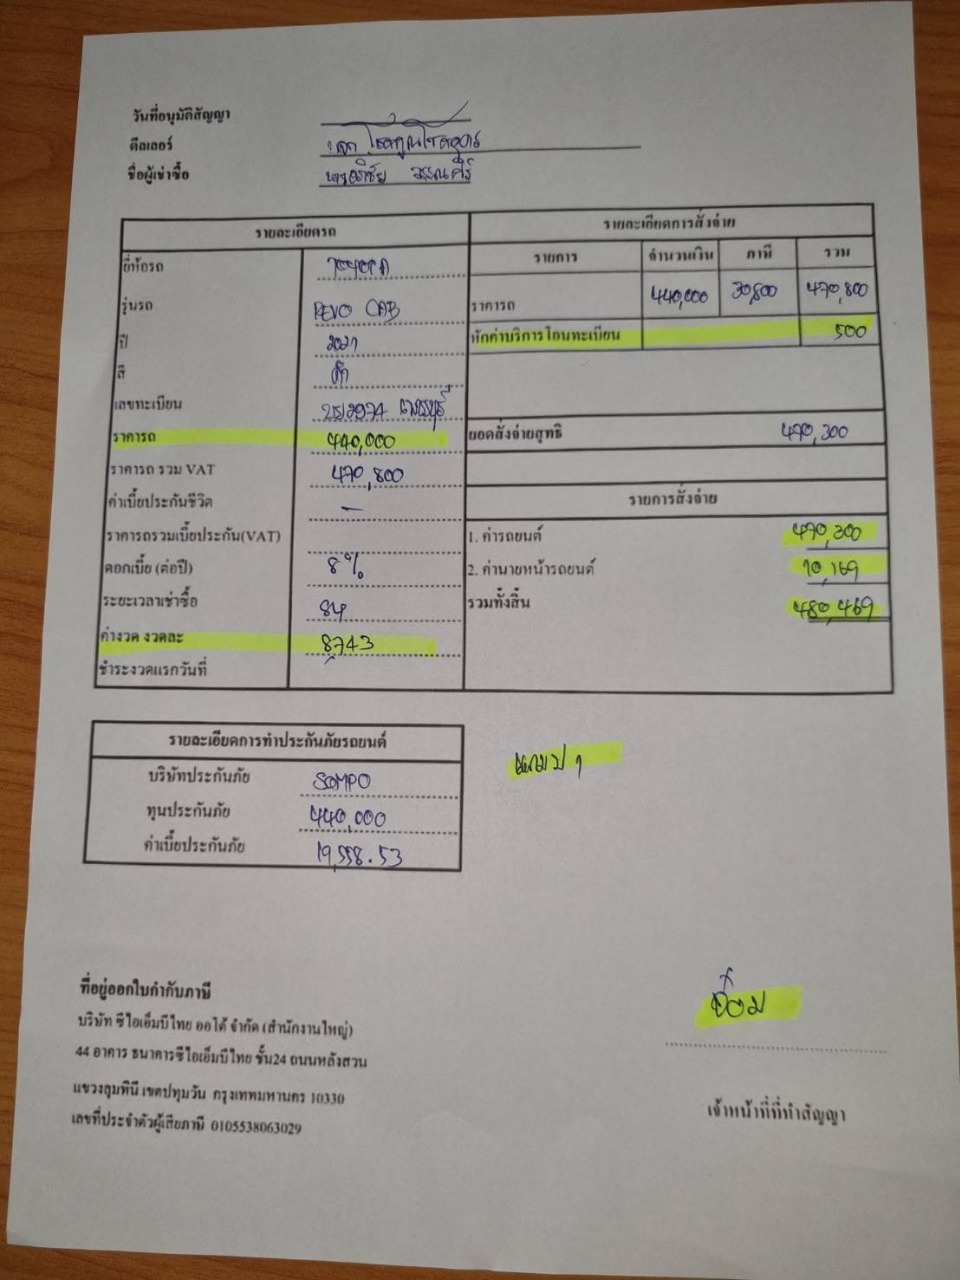 วันที่อนุมัติสัญญา
ดีลเลอร์
ชื่อผู้เช่าซื้อ
รายละเอียดรถ
ยี่ห้อรถ TOYOTA
รุ่นรถ REVO CAB
ปี 2021
สี ดำ
เลขทะเบียน
ราคารถ 440,000
ราคารถ รวม VAT 470,800
ค่าเบี้ยประกันชีวิต -
ราคารถรวมเบี้ยประกัน(VAT)
ดอกเบี้ย (ต่อปี) 8%
ระยะเวลาเช่าซื้อ 84
ค่างวด งวดละ 8,743
ชำระงวดแรกวันที่
รายละเอียดการสั่งจ่าย
รายการ จำนวนเงิน ภาษี รวม
ราคารถ 440,000 30,800 470,800
หักค่าบริการโอนทะเบียน 500
ยอดสั่งจ่ายสุทธิ 470,300
รายการสั่งจ่าย
1. ค่ารถยนต์ 470,300
2. ค่านายหน้ารถยนต์ 10,169
รวมทั้งสิ้น 480,469
รายละเอียดการทำประกันภัยรถยนต์
บริษัทประกันภัย SOMPO
ทุนประกันภัย 440,000
ค่าเบี้ยประกันภัย 19,558.53
แถมป 1
ที่อยู่ออกใบกำกับภาษี
บริษัท ซีไอเอ็มบีไทย ออโต้ จำกัด (สำนักงานใหญ่)
44 อาคาร ธนาคารซีไอเอ็มบีไทย ชั้น24 ถนนหลังสวน
แขวงลุมพินี เขตปทุมวัน กรุงเทพมหานคร 10330
เลขที่ประจำตัวผู้เสียภาษี 0105538063029
เจ้าหน้าที่ที่ทำสัญญา